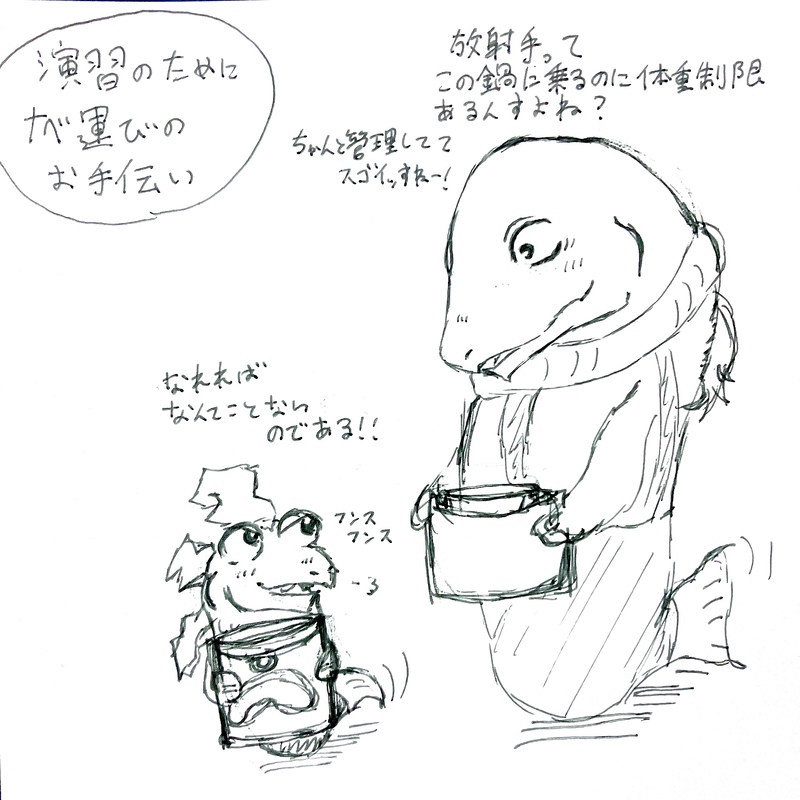 演習のために
ナベ運びの
お手伝い
放射手って
この鍋に乗るのに体重制限
あるんすよね?
ちゃんと管理してて
スゴイッすねー!
なれれば
なんてことない
のである!!
フンス
フンス